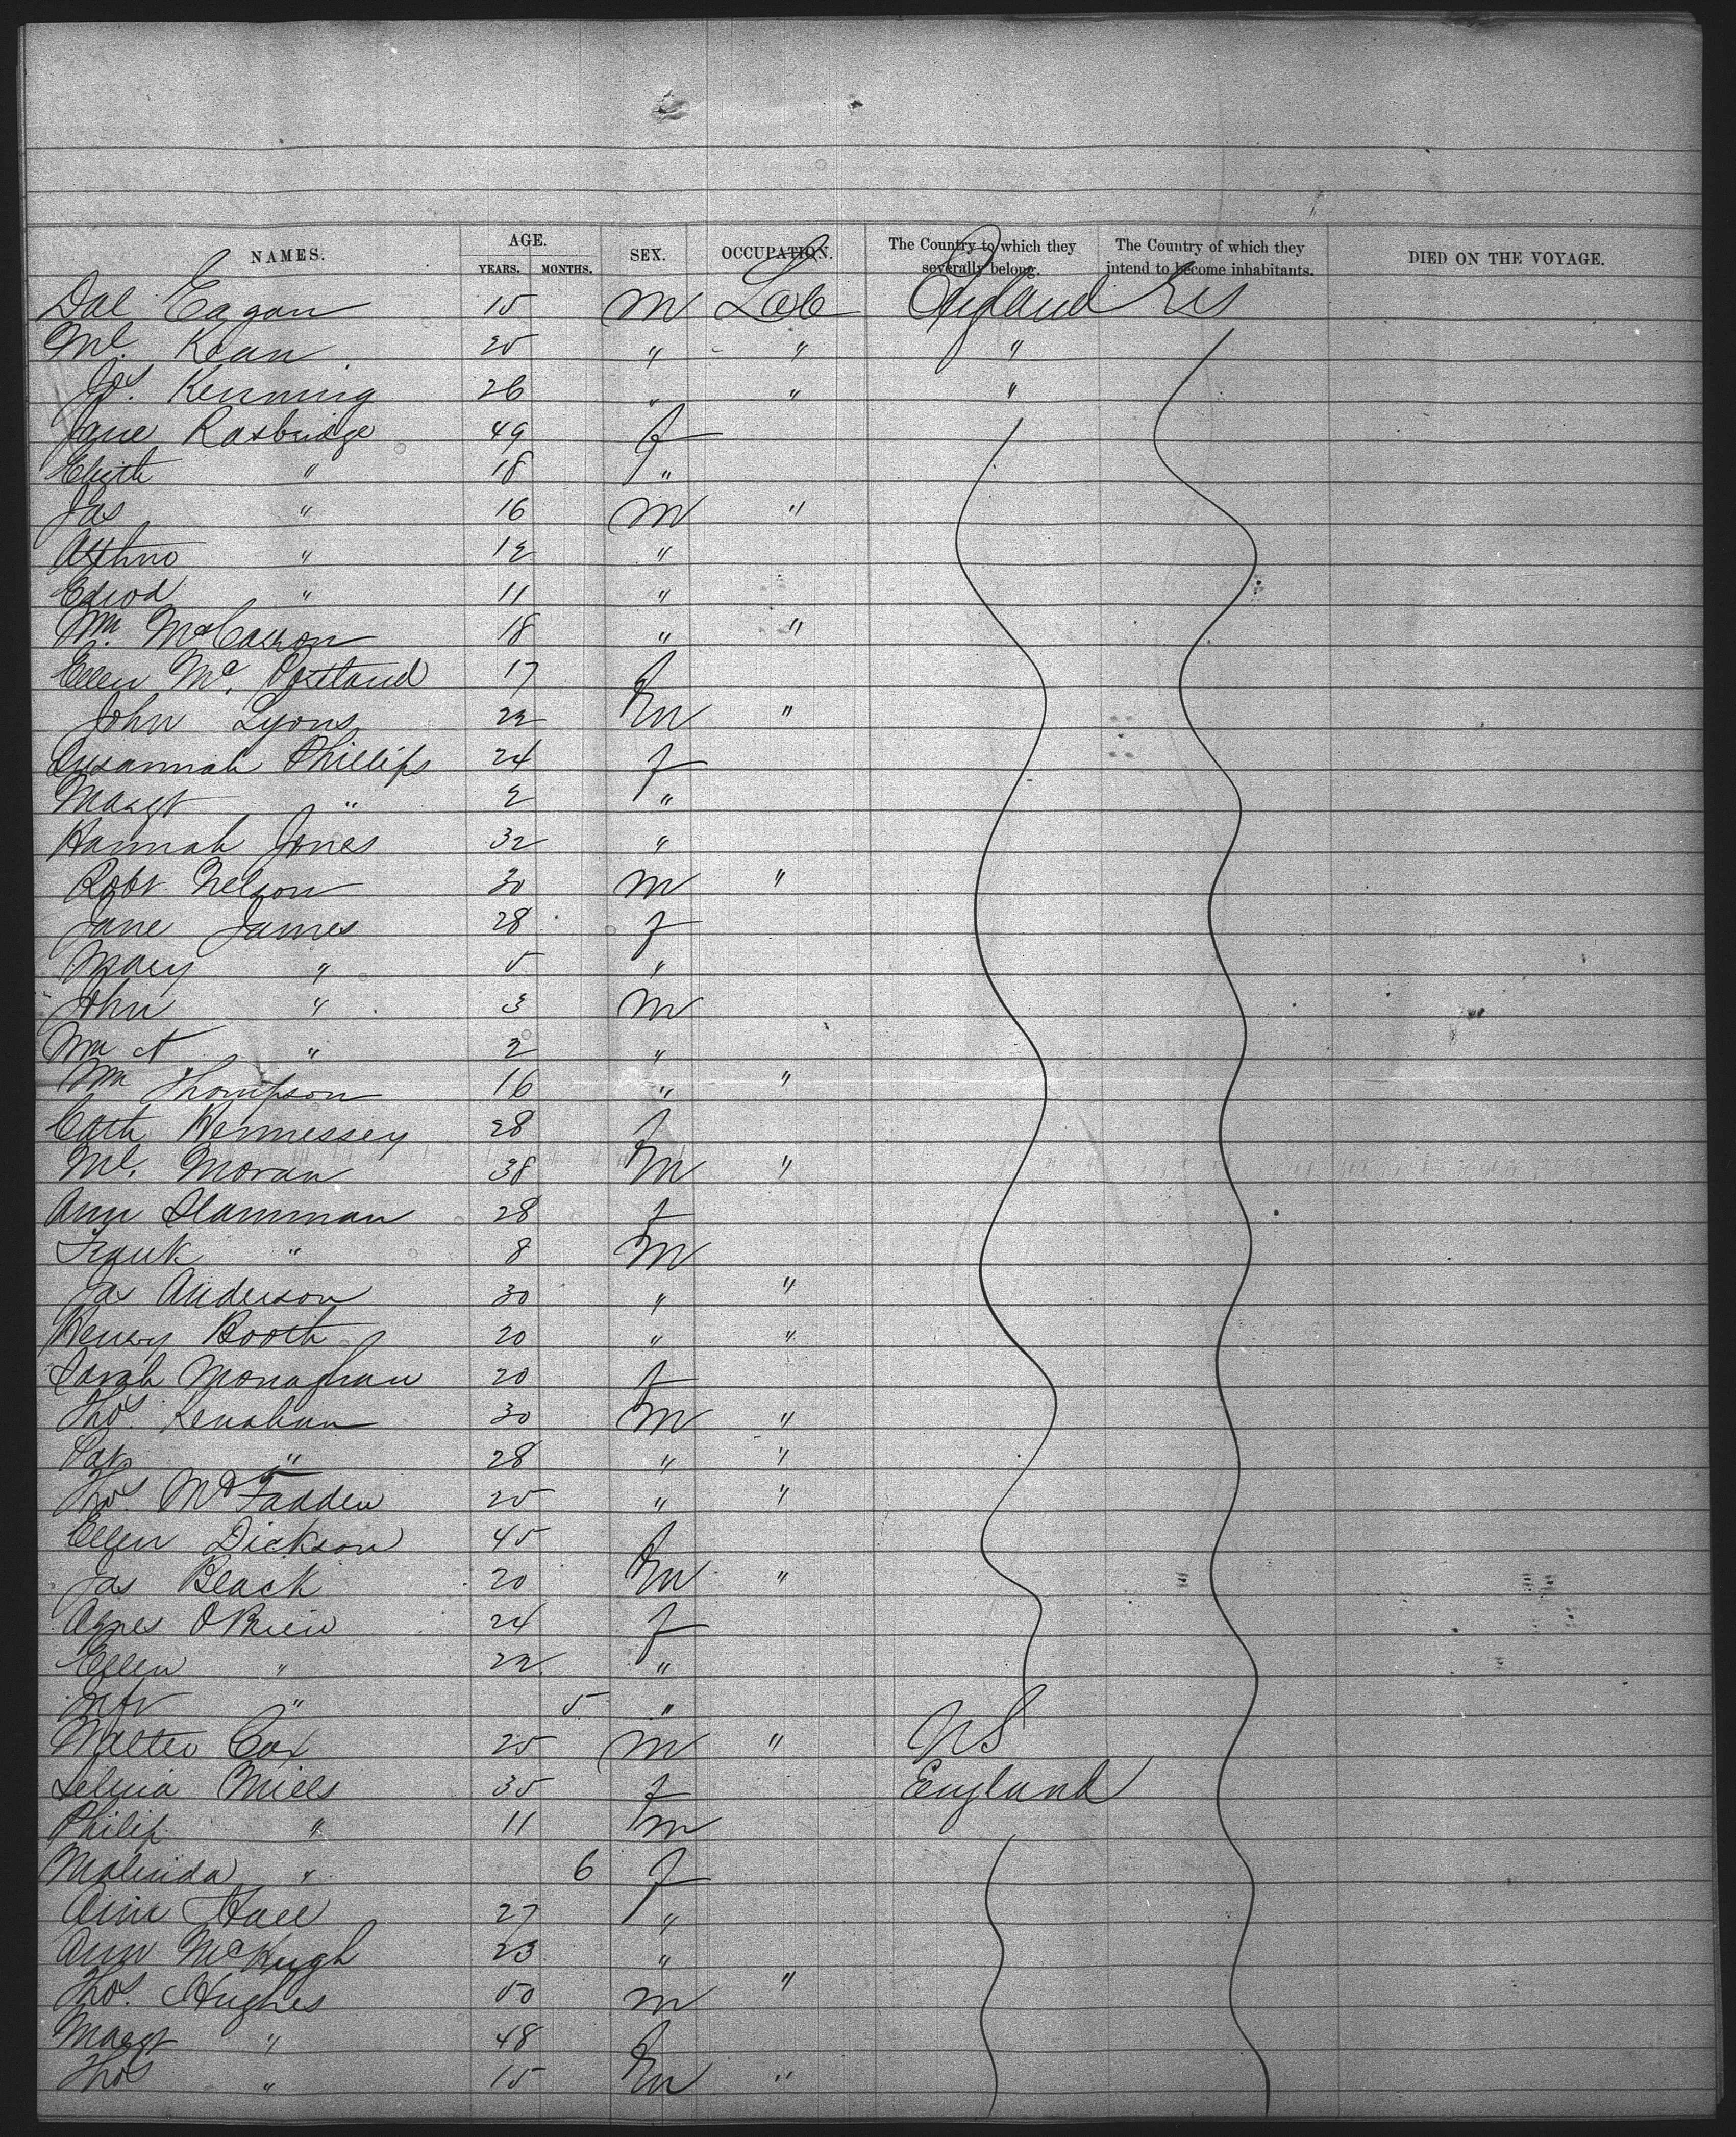 NAMES. AGE. SEX. OCCUPATION. The Country to which they severally belong. The Country of which they intend to become inhabitants. DIED ON THE VOYAGE.
YEARS. MONTHS.
Dal Eagan 15 M Lab England US
Ml. Kean 25 " " "
Jos. Kenning 26 " " "
Jane Raxbridge 49 f
Elizth " 18 "
Jas " 16 M "
" 12 "
Edwd " 11 "
Wm. 18 " "
Ellen Mc. 17 f
John Lyons 22 m "
Susannah Phillips 24 f
Margt " 2 "
Hannah Jones 32 "
Robt Nelson 30 M "
Jane James 28 f
Mary " 5 "
John " 3 M
Wm A " 2 "
Wm Thompson 16 " "
Cath Hennessey 28 f
Ml. Moran 38 M "
Ann Slamman 28 f
Frank " 8 M
Jas Anderson 30 " "
Henry Booth 20 " "
Sarah Monaghan 20 f
Thos. Lenahan 30 M "
Pat " 28 " "
Thos. McFadden 25 " "
Ellen Dickson 45 f
Jas Black 20 m "
Agnes OBrien 24 f
Ellen " 22 "
Inft " 5 "
Walter Cox 25 M " US
Selina Mills 35 f England
Philip " 11 m
Malinda " 6 f
Ann Hall 27 "
Ann McHugh 23 "
Thos. Hughes 50 m "
Margt " 48 f
Thos " 15 m "